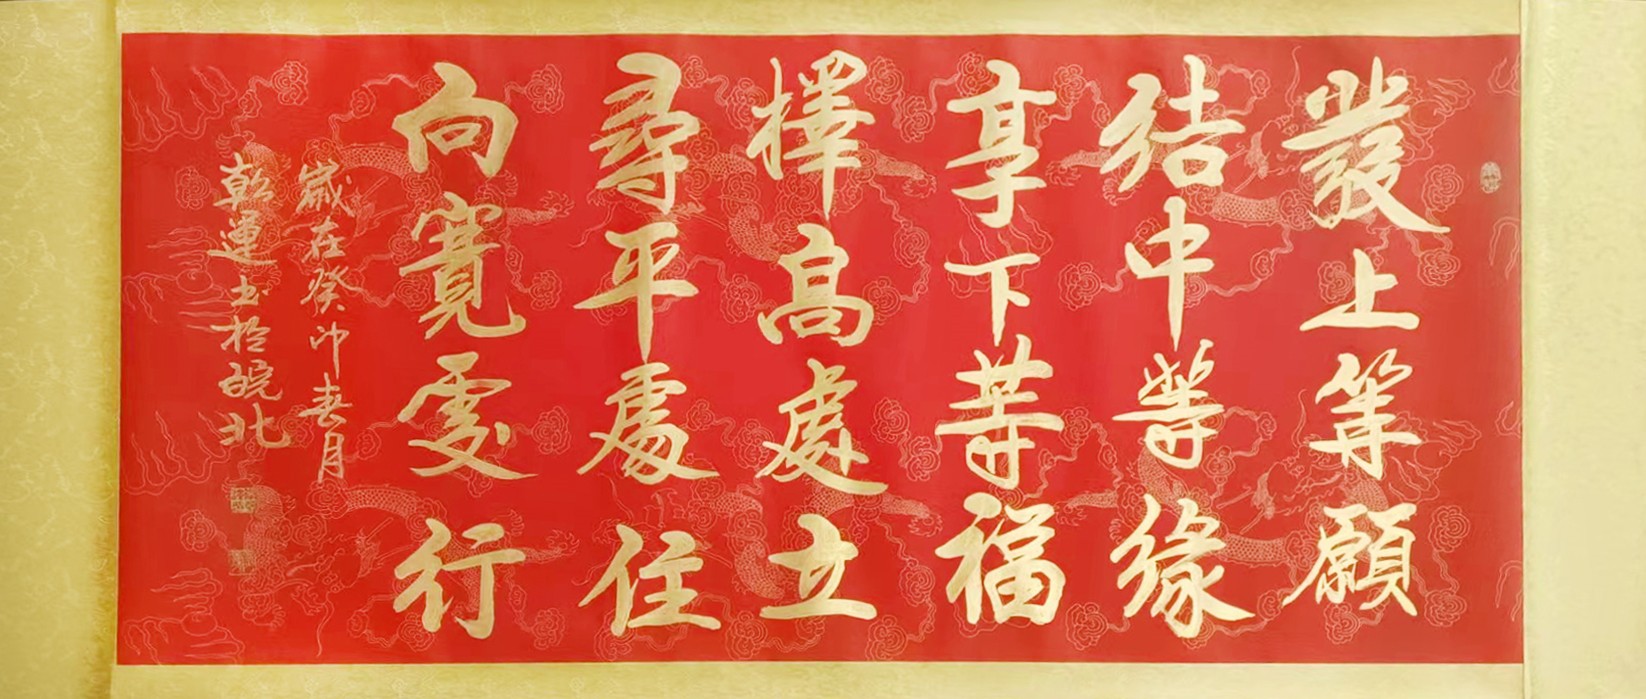 發上等願
結中等緣
享下等福
擇高處立
尋平處住
向寬處行
歲在癸卯春月
乾運书於皖北